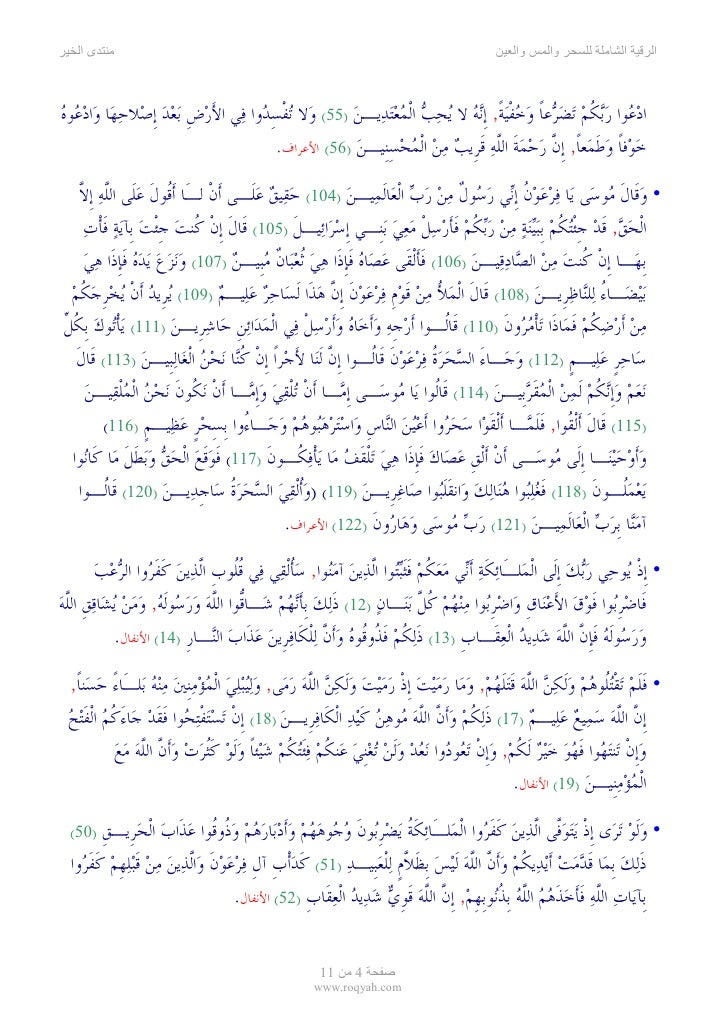 الرقية الشاملة للسحر والمس والعين منتدى الخير
ادْعُوا رَبَّكُمْ تَضَرُّعاً وَخُفْيَةً, إِنَّهُ لا يُحِبُّ الْمُعْتَدِيــــنَ (55) وَلا تُفْسِدُوا فِي الأَرْضِ بَعْدَ إِصْلاحِهَا وَادْعُوهُ
خَوْفاً وَطَمَعاً, إِنَّ رَحْمَةَ اللَّهِ قَرِيبٌ مِنْ الْمُحْسِنِيــــنَ (56) الأعراف.
• وَقَالَ مُوسَى يَا فِرْعَوْنُ إِنِّي رَسُولٌ مِنْ رَبِّ الْعَالَمِيــــنَ (104) حَقِيقٌ عَلَــــى أَنْ لــــا أَقُولَ عَلَى اللَّهِ إِلاَّ
الْحَقَّ, قَدْ جِئْتُكُمْ بِبَيِّنَةٍ مِنْ رَبِّكُمْ فَأَرْسِلْ مَعِيَ بَنِــــي إِسْرَائِيــــلَ (105) قَالَ إِن كُنتَ جِئْتَ بِآيَةٍ فَأْتِ
بِهَــــا إِنْ كُنتَ مِنْ الصَّادِقِيــــنَ (106) فَأَلْقَى عَصَاهُ فَإِذَا هِيَ ثُعْبَانٌ مُبِيــــنٌ (107) وَنَزَعَ يَدَهُ فَإِذَا هِيَ
بَيْضَــــاءُ لِلنَّاظِرِيــــنَ (108) قَالَ الْمَلأُ مِنْ قَوْمِ فِرْعَوْنَ إِنَّ هَذَا لَسَاحِرٌ عَلِيــــمٌ (109) يُرِيدُ أَنْ يُخْرِجَكُمْ
مِنْ أَرْضِكُمْ فَمَاذَا تَأْمُرُونَ (110) قَالُــــوا أَرْجِهِ وَأَخَاهُ وَأَرْسِلْ فِي الْمَدَائِنِ حَاشِرِيــــنَ (111) يَأْتُوكَ بِكُلِّ
سَاحِرٍ عَلِيــــمٍ (112) وَجَــــاءَ السَّحَرَةُ فِرْعَوْنَ قَالُــــوا إِنَّ لَنَا لأَجْراً إِنْ كُنَّا نَحْنُ الْغَالِبِيــــنَ (113) قَالَ
نَعَمْ وَإِنَّكُمْ لَمِنْ الْمُقَرَّبِيــــنَ (114) قَالُوا يَا مُوسَــــى إِمَّــــا أَنْ تُلْقِيَ وَإِمَّــــا أَنْ نَكُونَ نَحْنُ الْمُلْقِيــــنَ
(115) قَالَ أَلْقُوا, فَلَمَّــــا أَلْقَوْا سَحَرُوا أَعْيُنَ النَّاسِ وَاسْتَرْهَبُوهُمْ وَجَــــاءُوا بِسِحْرٍ عَظِيــــمٍ (116)
وَأَوْحَيْنَــــا إِلَى مُوسَــــى أَنْ أَلْقِ عَصَاكَ فَإِذَا هِيَ تَلْقَفُ مَا يَأْفِكُــــونَ (117) فَوَقَعَ الْحَقُّ وَبَطَلَ مَا كَانُوا
يَعْمَلُــــونَ (118) فَغُلِبُوا هُنَالِكَ وَانقَلَبُوا صَاغِرِيــــنَ (119) (وَأُلْقِيَ السَّحَرَةُ سَاجِدِيــــنَ (120) قَالُــــوا
آمَنَّا بِرَبِّ الْعَالَمِيــــنَ (121) رَبِّ مُوسَى وَهَارُونَ (122) الأعراف.
• إِذْ يُوحِي رَبُّكَ إِلَى الْمَلــــَائِكَةِ أَنِّي مَعَكُمْ فَثَبِّتُوا الَّذِينَ آمَنُوا, سَأُلْقِي فِي قُلُوبِ الَّذِينَ كَفَرُوا الرُّعْبَ
فَاضْرِبُوا فَوْقَ الأَعْنَاقِ وَاضْرِبُوا مِنْهُمْ كُلَّ بَنَــــانٍ (12) ذَلِكَ بِأَنَّهُمْ شَــــاقُّوا اللَّهَ وَرَسُولَهُ, وَمَنْ يُشَاقِقِ اللَّهَ
وَرَسُولَهُ فَإِنَّ اللَّهَ شَدِيدُ الْعِقَــــابِ (13) ذَلِكُمْ فَذُوقُوهُ وَأَنَّ لِلْكَافِرِينَ عَذَابَ النَّــــارِ (14) الأنفال.
• فَلَمْ تَقْتُلُوهُمْ وَلَكِنَّ اللَّهَ قَتَلَهُمْ, وَمَا رَمَيْتَ إِذْ رَمَيْتَ وَلَكِنَّ اللَّهَ رَمَى, وَلِيُبْلِيَ الْمُؤْمِنِينَ مِنْهُ بَلــــَاءً حَسَناً,
إِنَّ اللَّهَ سَمِيعٌ عَلِيــــمٌ (17) ذَلِكُمْ وَأَنَّ اللَّهَ مُوهِنُ كَيْدِ الْكَافِرِيــــنَ (18) إِنْ تَسْتَفْتِحُوا فَقَدْ جَاءَكُمُ الْفَتْحُ
وَإِنْ تَنتَهُوا فَهُوَ خَيْرٌ لَكُمْ, وَإِنْ تَعُودُوا نَعُدْ وَلَنْ تُغْنِيَ عَنكُمْ فِئَتُكُمْ شَيْئاً وَلَوْ كَثُرَتْ وَأَنَّ اللَّهَ مَعَ
الْمُؤْمِنِيــــنَ (19) الأنفال.
• وَلَوْ تَرَى إِذْ يَتَوَفَّى الَّذِينَ كَفَرُوا الْمَلــــَائِكَةُ يَضْرِبُونَ وُجُوهَهُمْ وَأَدْبَارَهُمْ وَذُوقُوا عَذَابَ الْحَرِيــــقِ (50)
ذَلِكَ بِمَا قَدَّمَتْ أَيْدِيكُمْ وَأَنَّ اللَّهَ لَيْسَ بِظَلاَّمٍ لِلْعَبِيــــدِ (51) كَدَأْبِ آلِ فِرْعَوْنَ وَالَّذِينَ مِنْ قَبْلِهِمْ كَفَرُوا
بِآيَاتِ اللَّهِ فَأَخَذَهُمُ اللَّهُ بِذُنُوبِهِمْ, إِنَّ اللَّهَ قَوِيٌّ شَدِيدُ الْعِقَابِ (52) الأنفال.
صفحة 4 من 11
www.roqyah.com